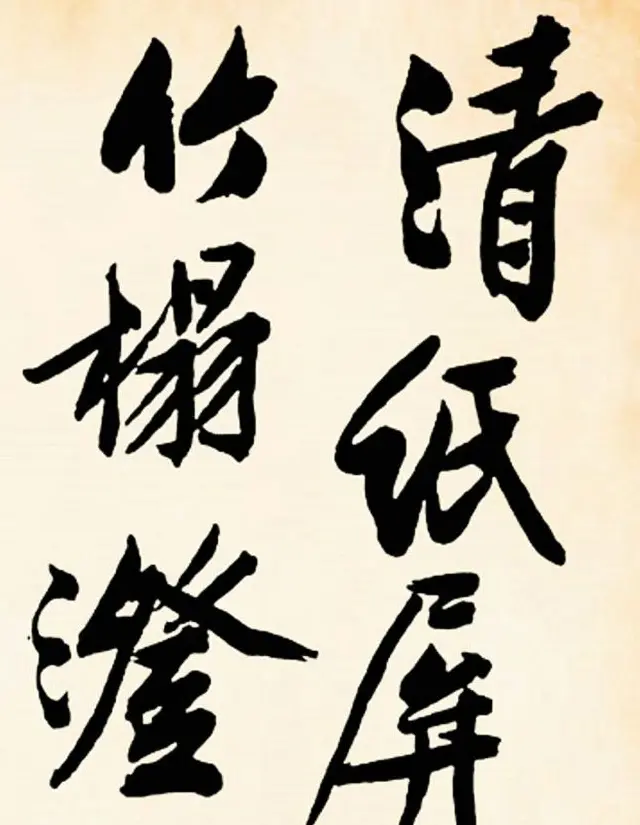 清纸屏
竹榻澄